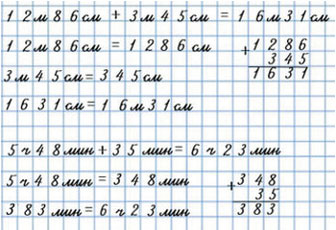 12м86см + 3м45см = 16м31см
12м86см = 1286см
+ 1286
345
1631
3м45см = 345см
1631см = 16м31см
5ч48мин + 35мин = 6ч23мин
5ч48мин = 348мин
+ 348
35
383
383мин = 6ч23мин